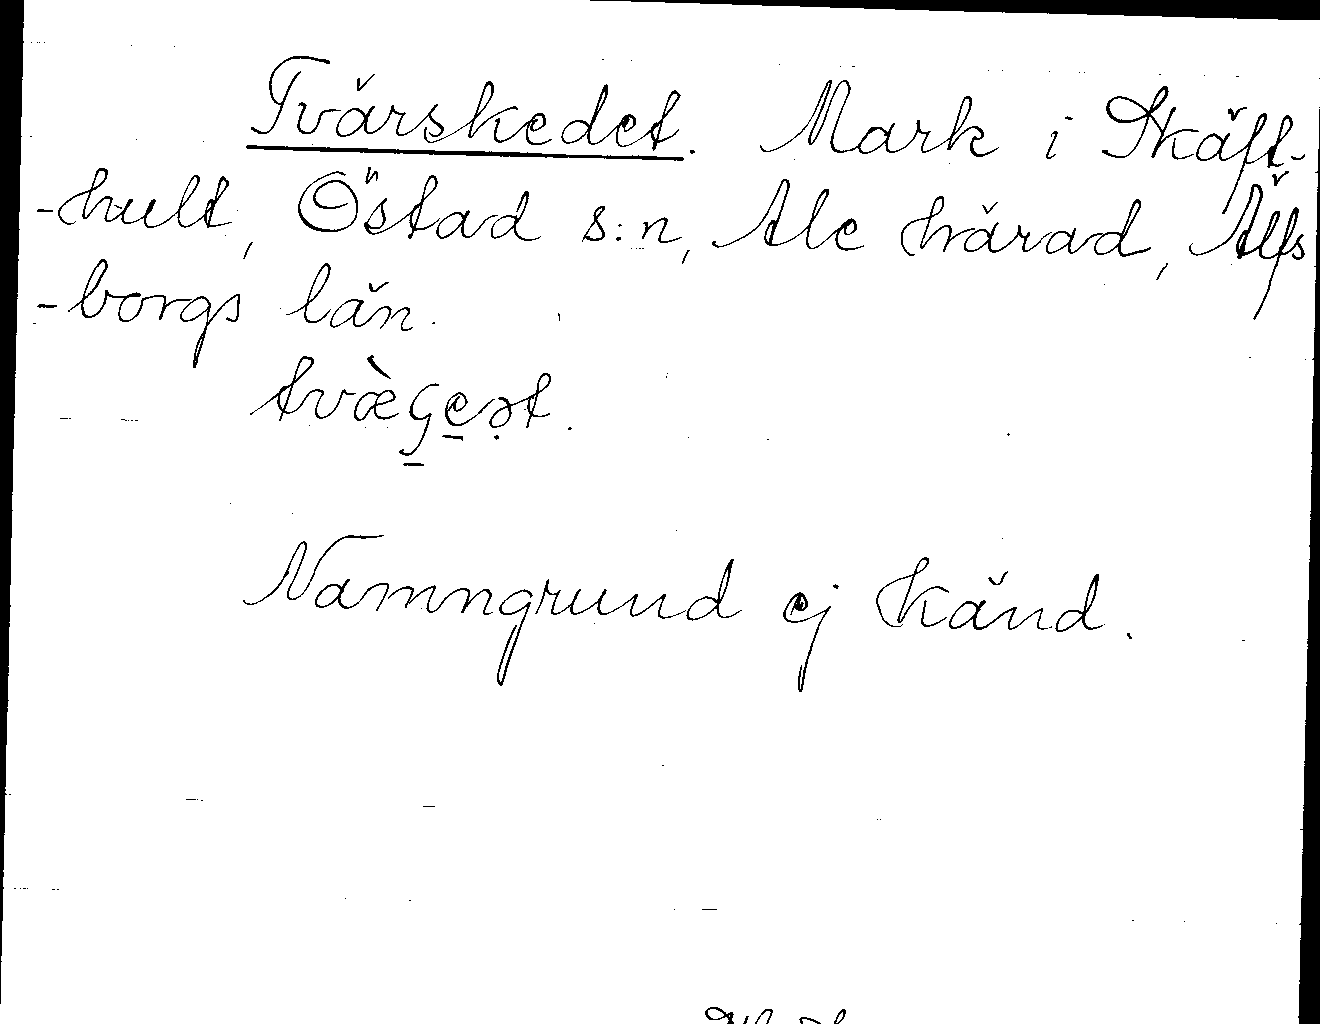 Tvärskedet. Mark i Skäft-
-hult, Östad s:n, Ale härad, Älfs
-borgs län.
Namngrund ej känd.